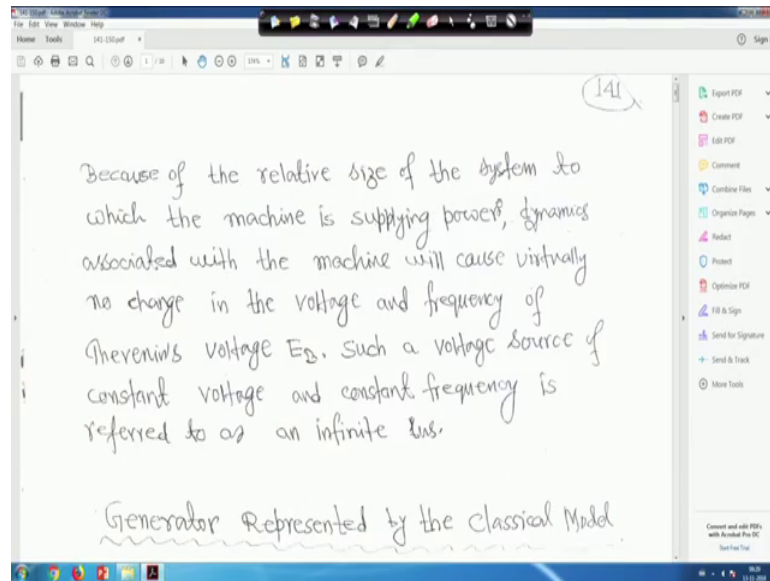 141-150.pdf - Adobe Acrobat Reader DC
File Edit View Window Help
Home Tools 141-150.pdf × Sign
1 / 10
141
Because of the relative size of the system to
which the machine is supplying power, dynamics
associated with the machine will cause virtually
no change in the voltage and frequency of
Thevenin's voltage EB. Such a voltage source of
constant voltage and constant frequency is
referred to as an infinite bus.
Generator Represented by the Classical Model
Export PDF
Create PDF
Edit PDF
Comment
Combine Files
Organize Pages
Redact
Protect
Optimize PDF
Fill & Sign
Send for Signature
Send & Track
More Tools
Convert and edit PDFs
with Acrobat Pro DC
Start Free Trial